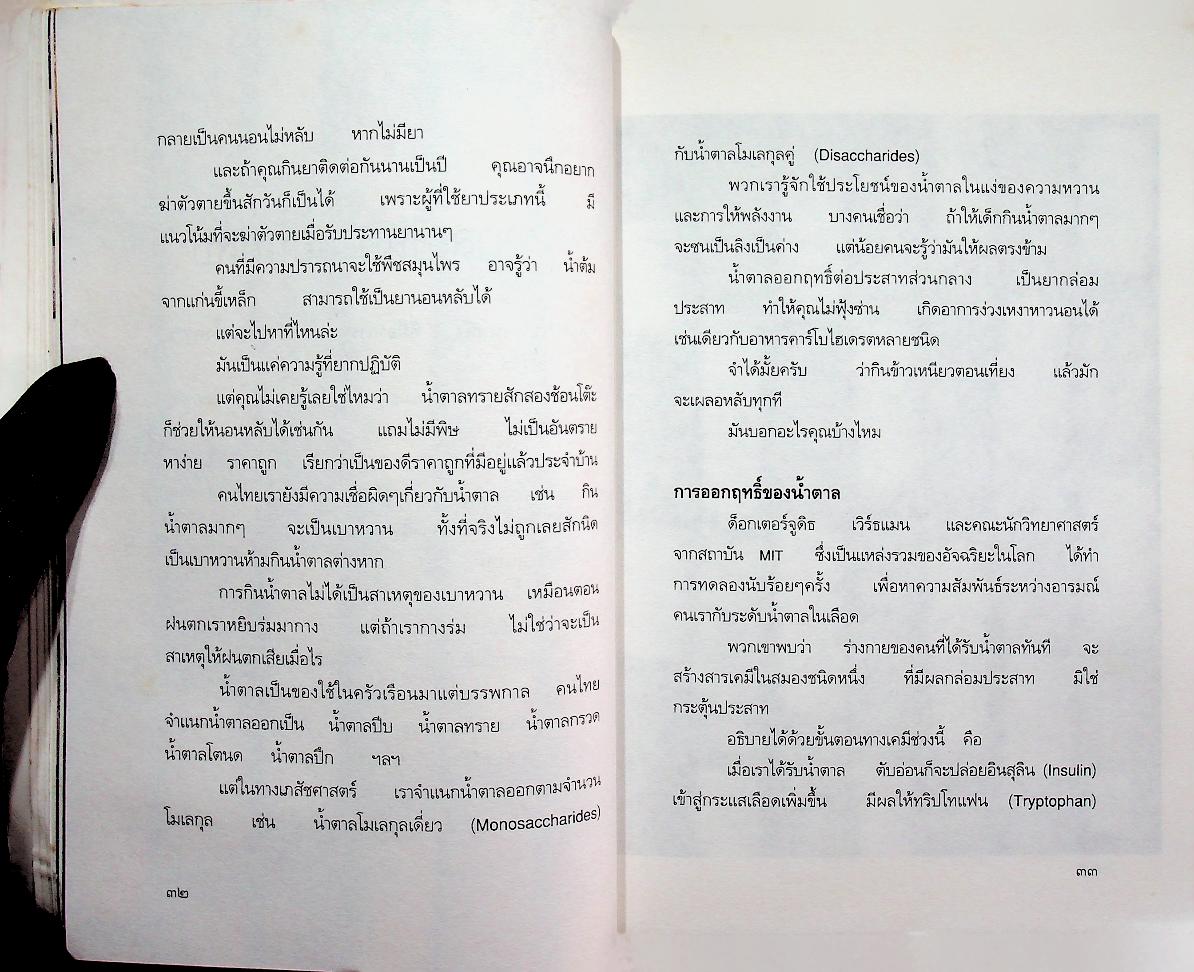 กลายเป็นคนนอนไม่หลับ หากไม่มียา
และถ้าคุณกินยาติดต่อกันนานเป็นปี คุณอาจนึกอยาก
ฆ่าตัวตายขึ้นสักวันก็เป็นได้ เพราะผู้ที่ใช้ยาประเภทนี้ มี
แนวโน้มที่จะฆ่าตัวตายเมื่อรับประทานยานานๆ
คนที่มีความปรารถนาจะใช้พืชสมุนไพร อาจรู้ว่า น้ำต้ม
จากแก่นขี้เหล็ก สามารถใช้เป็นยานอนหลับได้
แต่จะไปหาที่ไหนล่ะ
มันเป็นแค่ความรู้ที่ยากปฏิบัติ
แต่คุณไม่เคยรู้เลยใช่ไหมว่า น้ำตาลทรายสักสองช้อนโต๊ะ
ก็ช่วยให้นอนหลับได้เช่นกัน แถมไม่มีพิษ ไม่เป็นอันตราย
หาง่าย ราคาถูก เรียกว่าเป็นของดีราคาถูกที่มีอยู่แล้วประจำบ้าน
คนไทยเรายังมีความเชื่อผิดๆเกี่ยวกับน้ำตาล เช่น กิน
น้ำตาลมากๆ จะเป็นเบาหวาน ทั้งที่จริงไม่ถูกเลยสักนิด
เป็นเบาหวานห้ามกินน้ำตาลต่างหาก
การกินน้ำตาลไม่ได้เป็นสาเหตุของเบาหวาน เหมือนตอน
ฝนตกเราหยิบร่มมากาง แต่ถ้าเรากางร่ม ไม่ใช่ว่าจะเป็น
สาเหตุให้ฝนตกเสียเมื่อไร
น้ำตาลเป็นของใช้ในครัวเรือนมาแต่บรรพกาล คนไทย
จำแนกน้ำตาลออกเป็น น้ำตาลปีบ น้ำตาลทราย น้ำตาลกรวด
น้ำตาลโตนด น้ำตาลปึก ฯลฯ
แต่ในทางเภสัชศาสตร์ เราจำแนกน้ำตาลออกตามจำนวน
โมเลกุล เช่น น้ำตาลโมเลกุลเดี่ยว (Monosaccharides)
๓๒
กับน้ำตาลโมเลกุลคู่ (Disaccharides)
พวกเรารู้จักใช้ประโยชน์ของน้ำตาลในแง่ของความหวาน
และการให้พลังงาน บางคนเชื่อว่า ถ้าให้เด็กกินน้ำตาลมากๆ
จะซนเป็นลิงเป็นค่าง แต่น้อยคนจะรู้ว่ามันให้ผลตรงข้าม
น้ำตาลออกฤทธิ์ต่อประสาทส่วนกลาง เป็นยากล่อม
ประสาท ทำให้คุณไม่ฟุ้งซ่าน เกิดอาการง่วงเหงาหาวนอนได้
เช่นเดียวกับอาหารคาร์โบไฮเดรตหลายชนิด
จำได้มั้ยครับ ว่ากินข้าวเหนียวตอนเที่ยง แล้วมัก
จะเผลอหลับทุกที
มันบอกอะไรคุณบ้างไหม
การออกฤทธิ์ของน้ำตาล
ด็อกเตอร์จูดิธ เวิร์ธแมน และคณะนักวิทยาศาสตร์
จากสถาบัน MIT ซึ่งเป็นแหล่งรวมของอัจฉริยะในโลก ได้ทำ
การทดลองนับร้อยๆครั้ง เพื่อหาความสัมพันธ์ระหว่างอารมณ์
คนเรากับระดับน้ำตาลในเลือด
พวกเขาพบว่า ร่างกายของคนที่ได้รับน้ำตาลทันที จะ
สร้างสารเคมีในสมองชนิดหนึ่ง ที่มีผลกล่อมประสาท มิใช่
กระตุ้นประสาท
อธิบายได้ด้วยขั้นตอนทางเคมีช่วงนี้ คือ
เมื่อเราได้รับน้ำตาล ตับอ่อนก็จะปล่อยอินสุลิน (Insulin)
เข้าสู่กระแสเลือดเพิ่มขึ้น มีผลให้ทริปโทแฟน (Tryptophan)
๓๓